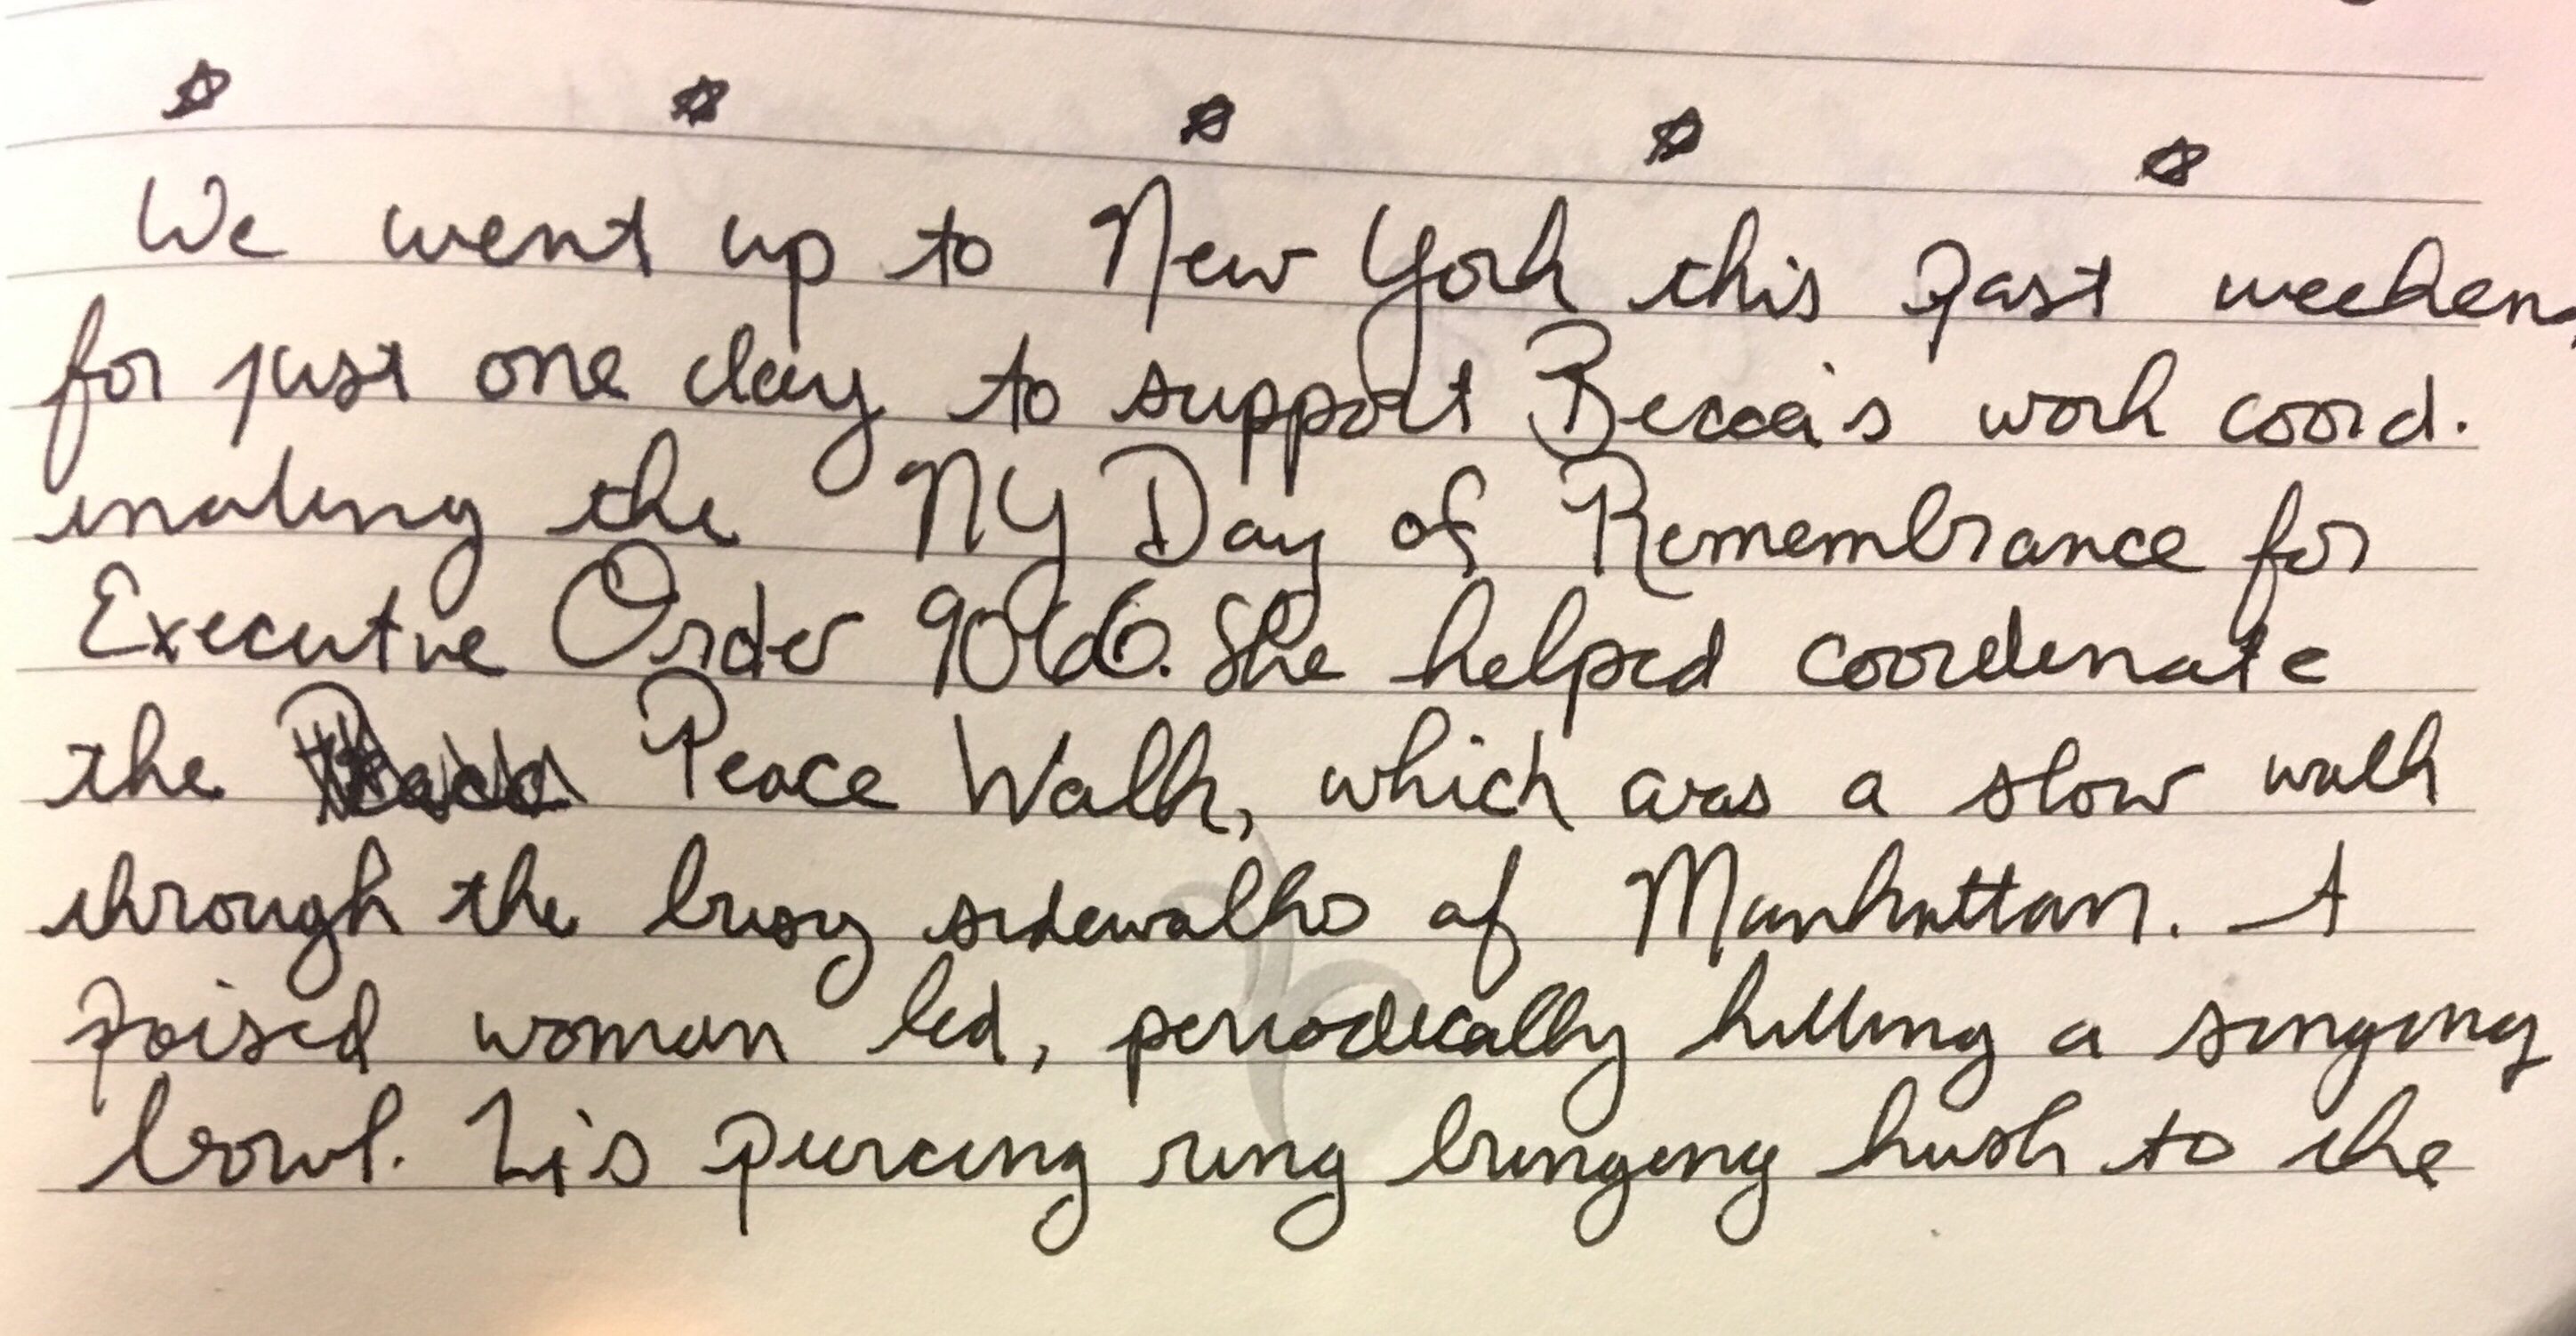 ☆ ☆ ☆ ☆ ☆
We went up to New York this past weeken
for just one day to support Becca's work coord.
making the NY Day of Remembrance for
Executive Order 9066. She helped coordinate
the Peace Walk, which was a slow walk
through the busy sidewalks of Manhattan. A
poised woman led, periodically hitting a singing
bowl. Its piercing ring bringing hush to the